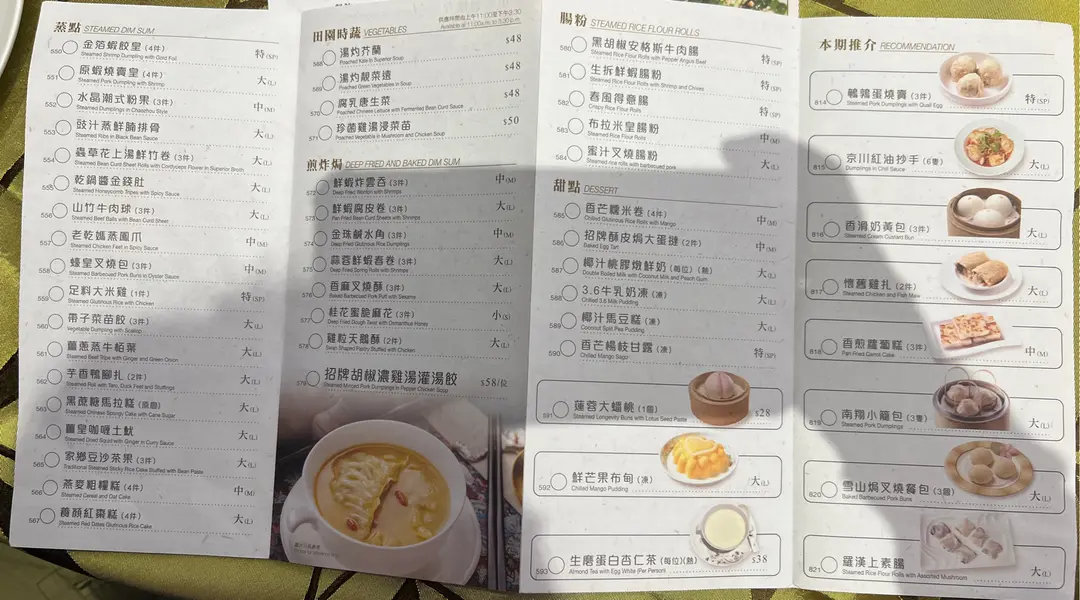 蒸點 STEAMED DIM SUM
550 金箔蝦餃皇 (4件) 特(SP)
Steamed Shrimp Dumpling with Gold Foil
551 原蝦燒賣皇 (4件) 大(L)
Steamed Pork Dumpling with Shrimp
552 水晶潮式粉果 (3件) 中(M)
Steamed Dumplings in Chaozhou Style
553 豉汁蒸鮮腩排骨 大(L)
Steamed Ribs in Black Bean Sauce
554 蟲草花上湯鮮竹卷 (3件) 大(L)
Steamed Bean Curd Sheet Rolls with Cordyceps Flower in Superior Broth
555 乾鍋醬金錢肚 大(L)
Steamed Honeycomb Tripes with Spicy Sauce
556 山竹牛肉球 (3件) 大(L)
Steamed Beef Balls with Bean Curd Sheet
557 老乾媽蒸鳳爪 中(M)
Steamed Chicken Feet in Spicy Sauce
558 蠔皇叉燒包 (3件) 中(M)
Steamed Barbecued Pork Buns in Oyster Sauce
559 足料大米雞 (1件) 特(SP)
Steamed Glutinous Rice with Chicken
560 帶子菜苗餃 (3件) 大(L)
Vegetable Dumpling with Scallop
561 薑葱蒸牛栢葉 大(L)
Steamed Beef Trips with Ginger and Green Onion
562 芋香鴨腳扎 (2件) 大(L)
Steamed Roll with Taro, Duck Feet and Stuffings
563 黑蔗糖馬拉糕 (原個) 大(L)
Steamed Chinese Spongy Cake with Cane Sugar
564 薑皇咖喱土魷 大(L)
Steamed Dried Squid with Ginger in Curry Sauce
565 家鄉豆沙茶果 (3件) 大(L)
Traditional Steamed Sticky Rice Cake Stuffed with Bean Paste
566 燕麥粗糧糕 (4件) 中(M)
Steamed Cereal and Oat Cake
567 養顏紅棗糕 (4件) 大(L)
Steamed Red Dates Glutinous Rice Cake
田園時蔬 VEGETABLES
供應時間由上午11:00至下午3:30
Available at 11:00a.m. to 3:30p.m.
568 湯灼芥蘭 $48
Poached Kale in Superior Soup
569 湯灼靚菜遠 $48
Poached Green Vegetables in Soup
570 腐乳唐生菜 $48
Poached Chinese Lettuce with Fermented Bean Curd Sauce
571 珍菌雞湯浸菜苗 $50
Poached Vegetable in Mushroom and Chicken Soup
煎炸焗 DEEP FRIED AND BAKED DIM SUM
572 鮮蝦炸雲吞 (3件) 中(M)
Deep Fried Wonton with Shrimps
573 鮮蝦腐皮卷 (3件) 大(L)
Pan Fried Bean Curd Sheets with Shrimps
574 金珠鹹水角 (3件) 中(M)
Deep Fried Glutinous Rice Dumplings
575 蒜蓉鮮蝦春卷 (3件) 大(L)
Deep Fried Spring Rolls with Shrimps
576 香麻叉燒酥 (3件) 大(L)
Baked Barbecued Pork Puff with Sesame
577 桂花蜜脆麻花 (3件) 小(S)
Deep Fried Dough Twist with Osmanthus Honey
578 雞粒天鵝酥 (2件) 大(L)
Swan Shaped Pastry Stuffed with Chicken
579 招牌胡椒濃雞湯灌湯餃 $58/位
Steamed Minced Pork Dumplings in Pepper Chicken Soup
腸粉 STEAMED RICE FLOUR ROLLS
580 黑胡椒安格斯牛肉腸 特(SP)
Steamed Rice Flour Rolls with Pepper Angus Beef
581 生拆鮮蝦腸粉 特(SP)
Steamed Rice Flour Rolls with Shrimp and Chives
582 春風得意腸 特(SP)
Crispy Rice Flour Rolls
583 布拉米皇腸粉 中(M)
Steamed Rice Flour Rolls
584 蜜汁叉燒腸粉 大(L)
Steamed rice rolls with barbecued pork
甜點 DESSERT
585 香芒糯米卷 (4件) 中(M)
Chilled Glutinous Rice Rolls with Mango
586 招牌酥皮焗大蛋撻 (2件) 中(M)
Baked Egg Tart
587 椰汁桃膠燉鮮奶 (每位) (熱) 大(L)
Double Boiled Milk with Coconut Milk and Peach Gum
588 3.6牛乳奶凍 (凍) 大(L)
Chilled 3.6 Milk Pudding
589 椰汁馬豆糕 (凍) 大(L)
Coconut Split Pea Pudding
590 香芒楊枝甘露 (凍) 特(SP)
Chilled Mango Sago
591 蓮蓉大蟠桃 (1個) $28
Steamed Longevity Buns with Lotus Seed Paste
592 鮮芒果布甸 (凍) 大(L)
Chilled Mango Pudding
593 生磨蛋白杏仁茶 (每位)(熱) $38
Almond Tea with Egg White (Per Person)
本期推介 RECOMMENDATION
814 鵪鶉蛋燒賣 (3件) 特(SP)
Steamed Pork Dumplings with Quail Egg
815 京川紅油抄手 (6隻) 大(L)
Dumplings in Chili Sauce
816 香滑奶黃包 (3件) 大(L)
Steamed Cream Custard Bun
817 懷舊雞扎 (2件) 大(L)
Steamed Chicken and Fish Maw
818 香煎蘿蔔糕 (3件) 中(M)
Pan-Fried Carrot Cake
819 南翔小籠包 (3隻) 大(L)
Steamed Pork Dumplings
820 雪山焗叉燒餐包 (3個) 大(L)
Baked Barbecued Pork Buns
821 羅漢上素腸 大(L)
Steamed Rice Flour Rolls with Assorted Mushroom